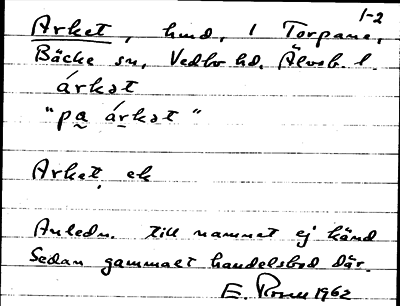 1-2
Arket, hmd, 1 Torpane,
Bäcke sn, Vedbo hd. Älvsb. l.
árkət
"pa árkət"
Arket, ek
Anledn. till namnet ej känd
Sedan gammalt handelsbod där.
E. 1962